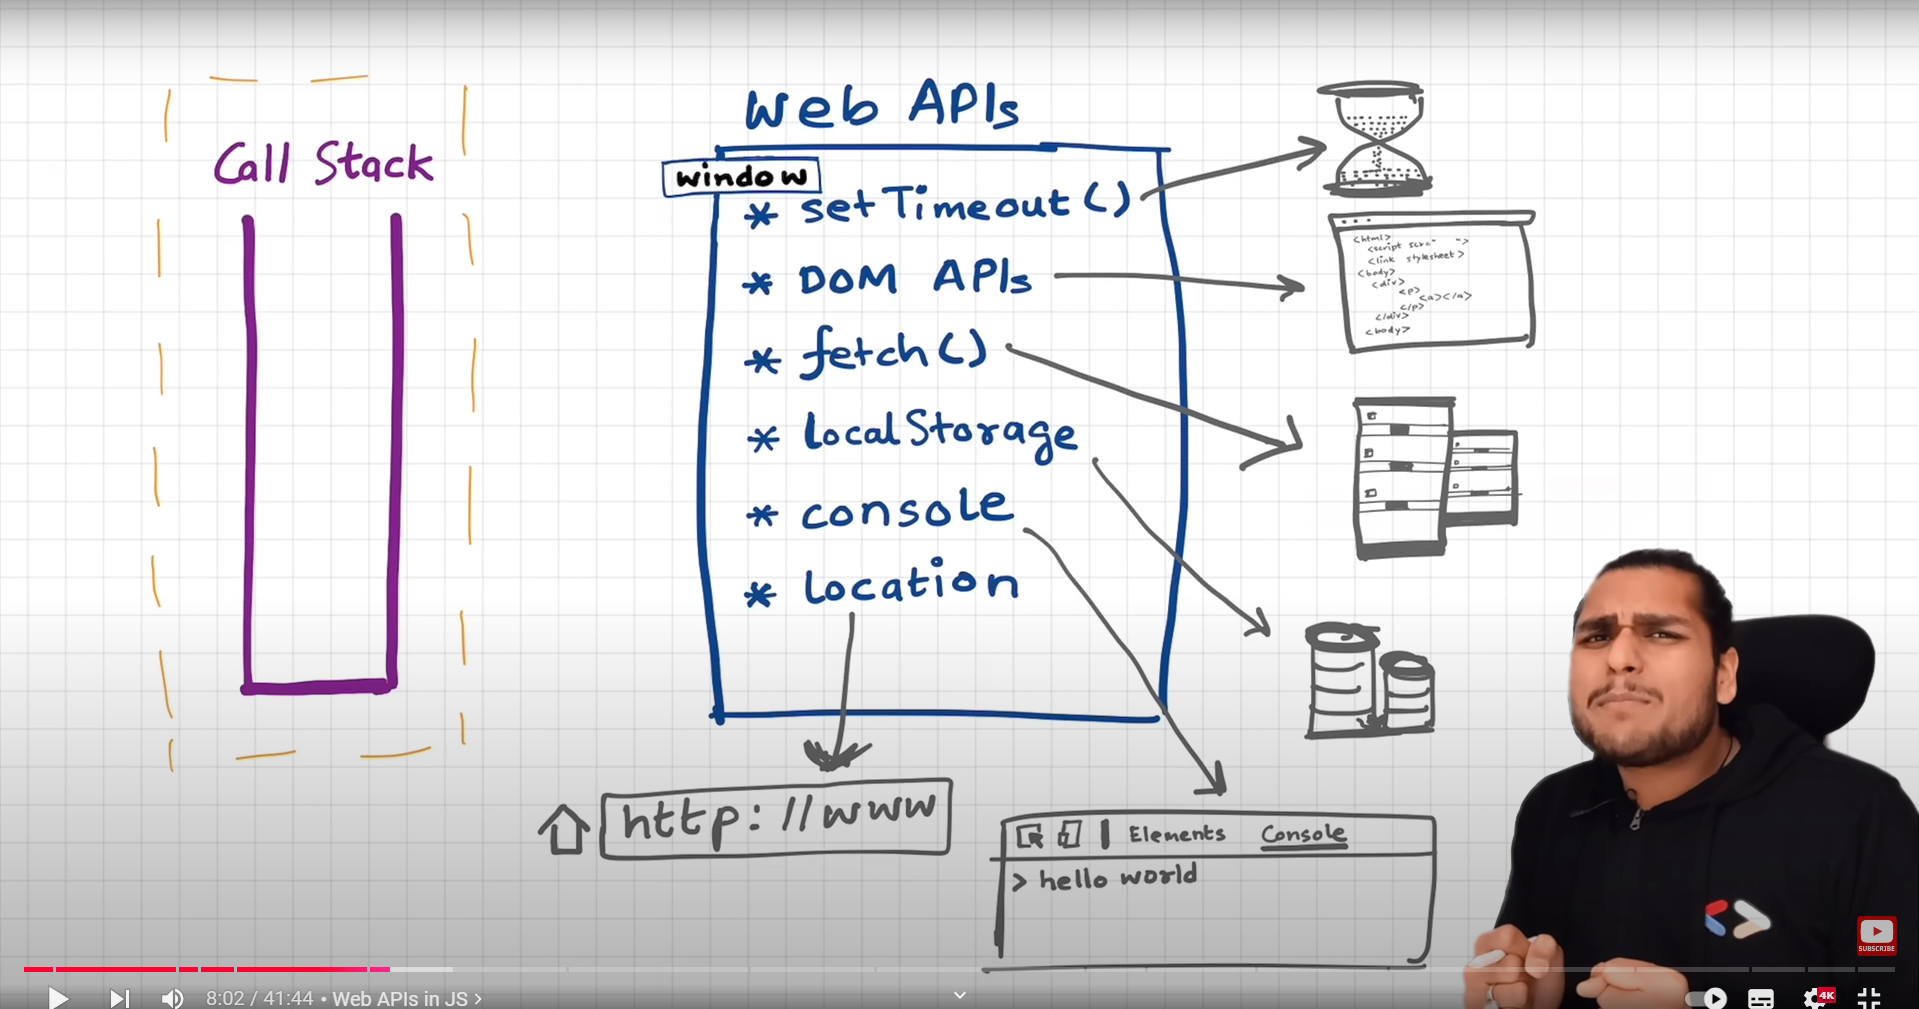 Call Stack
Web APIs
window
* setTimeout()
* DOM APIs
* fetch()
* localStorage
* console
* location
<html>
<link stylesheet>
<body>
<div>
<p>
<a></a>
</p>
</div>
<body>
http://www
Elements Console
> hello world
SUBSCRIBE
8:02 / 41:44 • Web APIs in JS >
4K